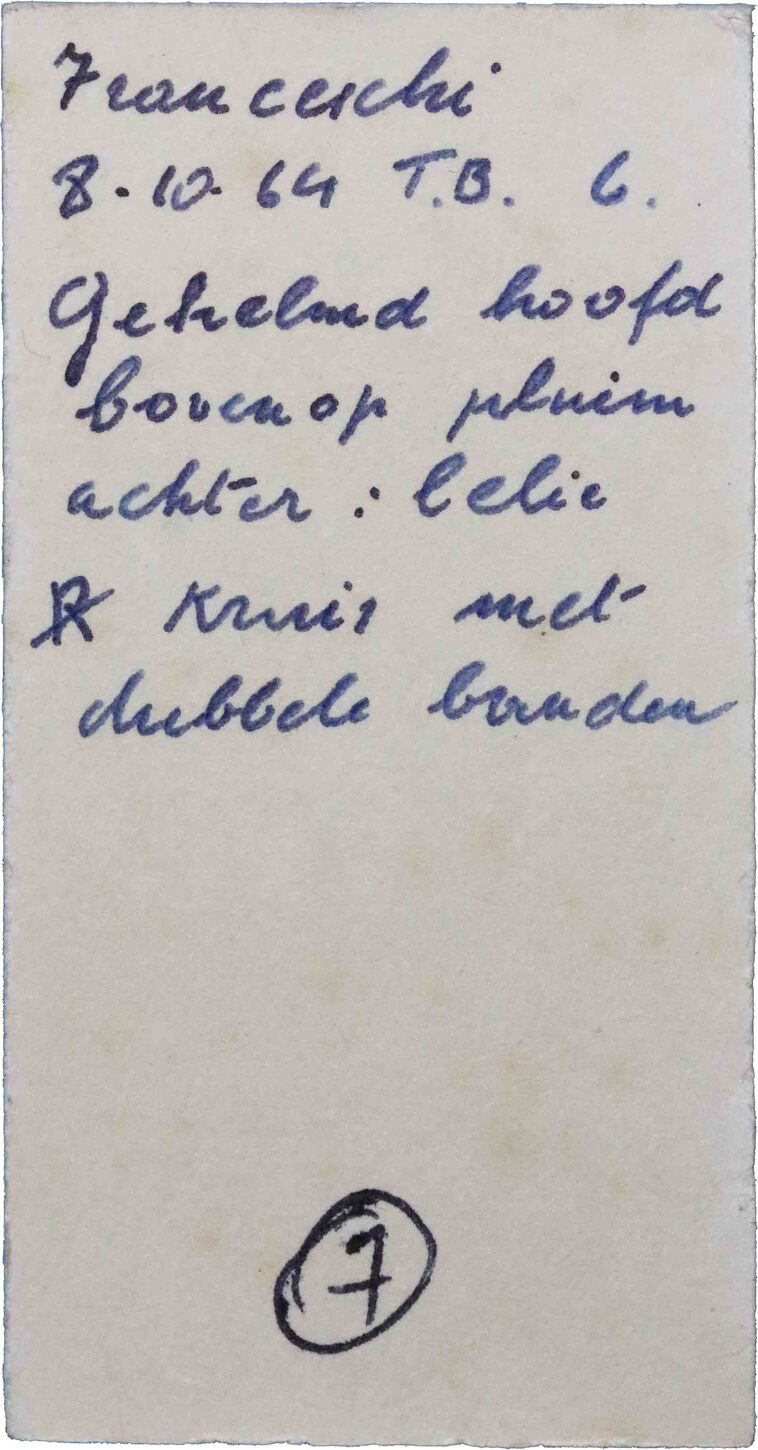 Franceschi
8.10.64 T.B. 6.
Gehelmd hoofd
bovenop pluim
achter : lelie
Kruis met
dubbele banden
7